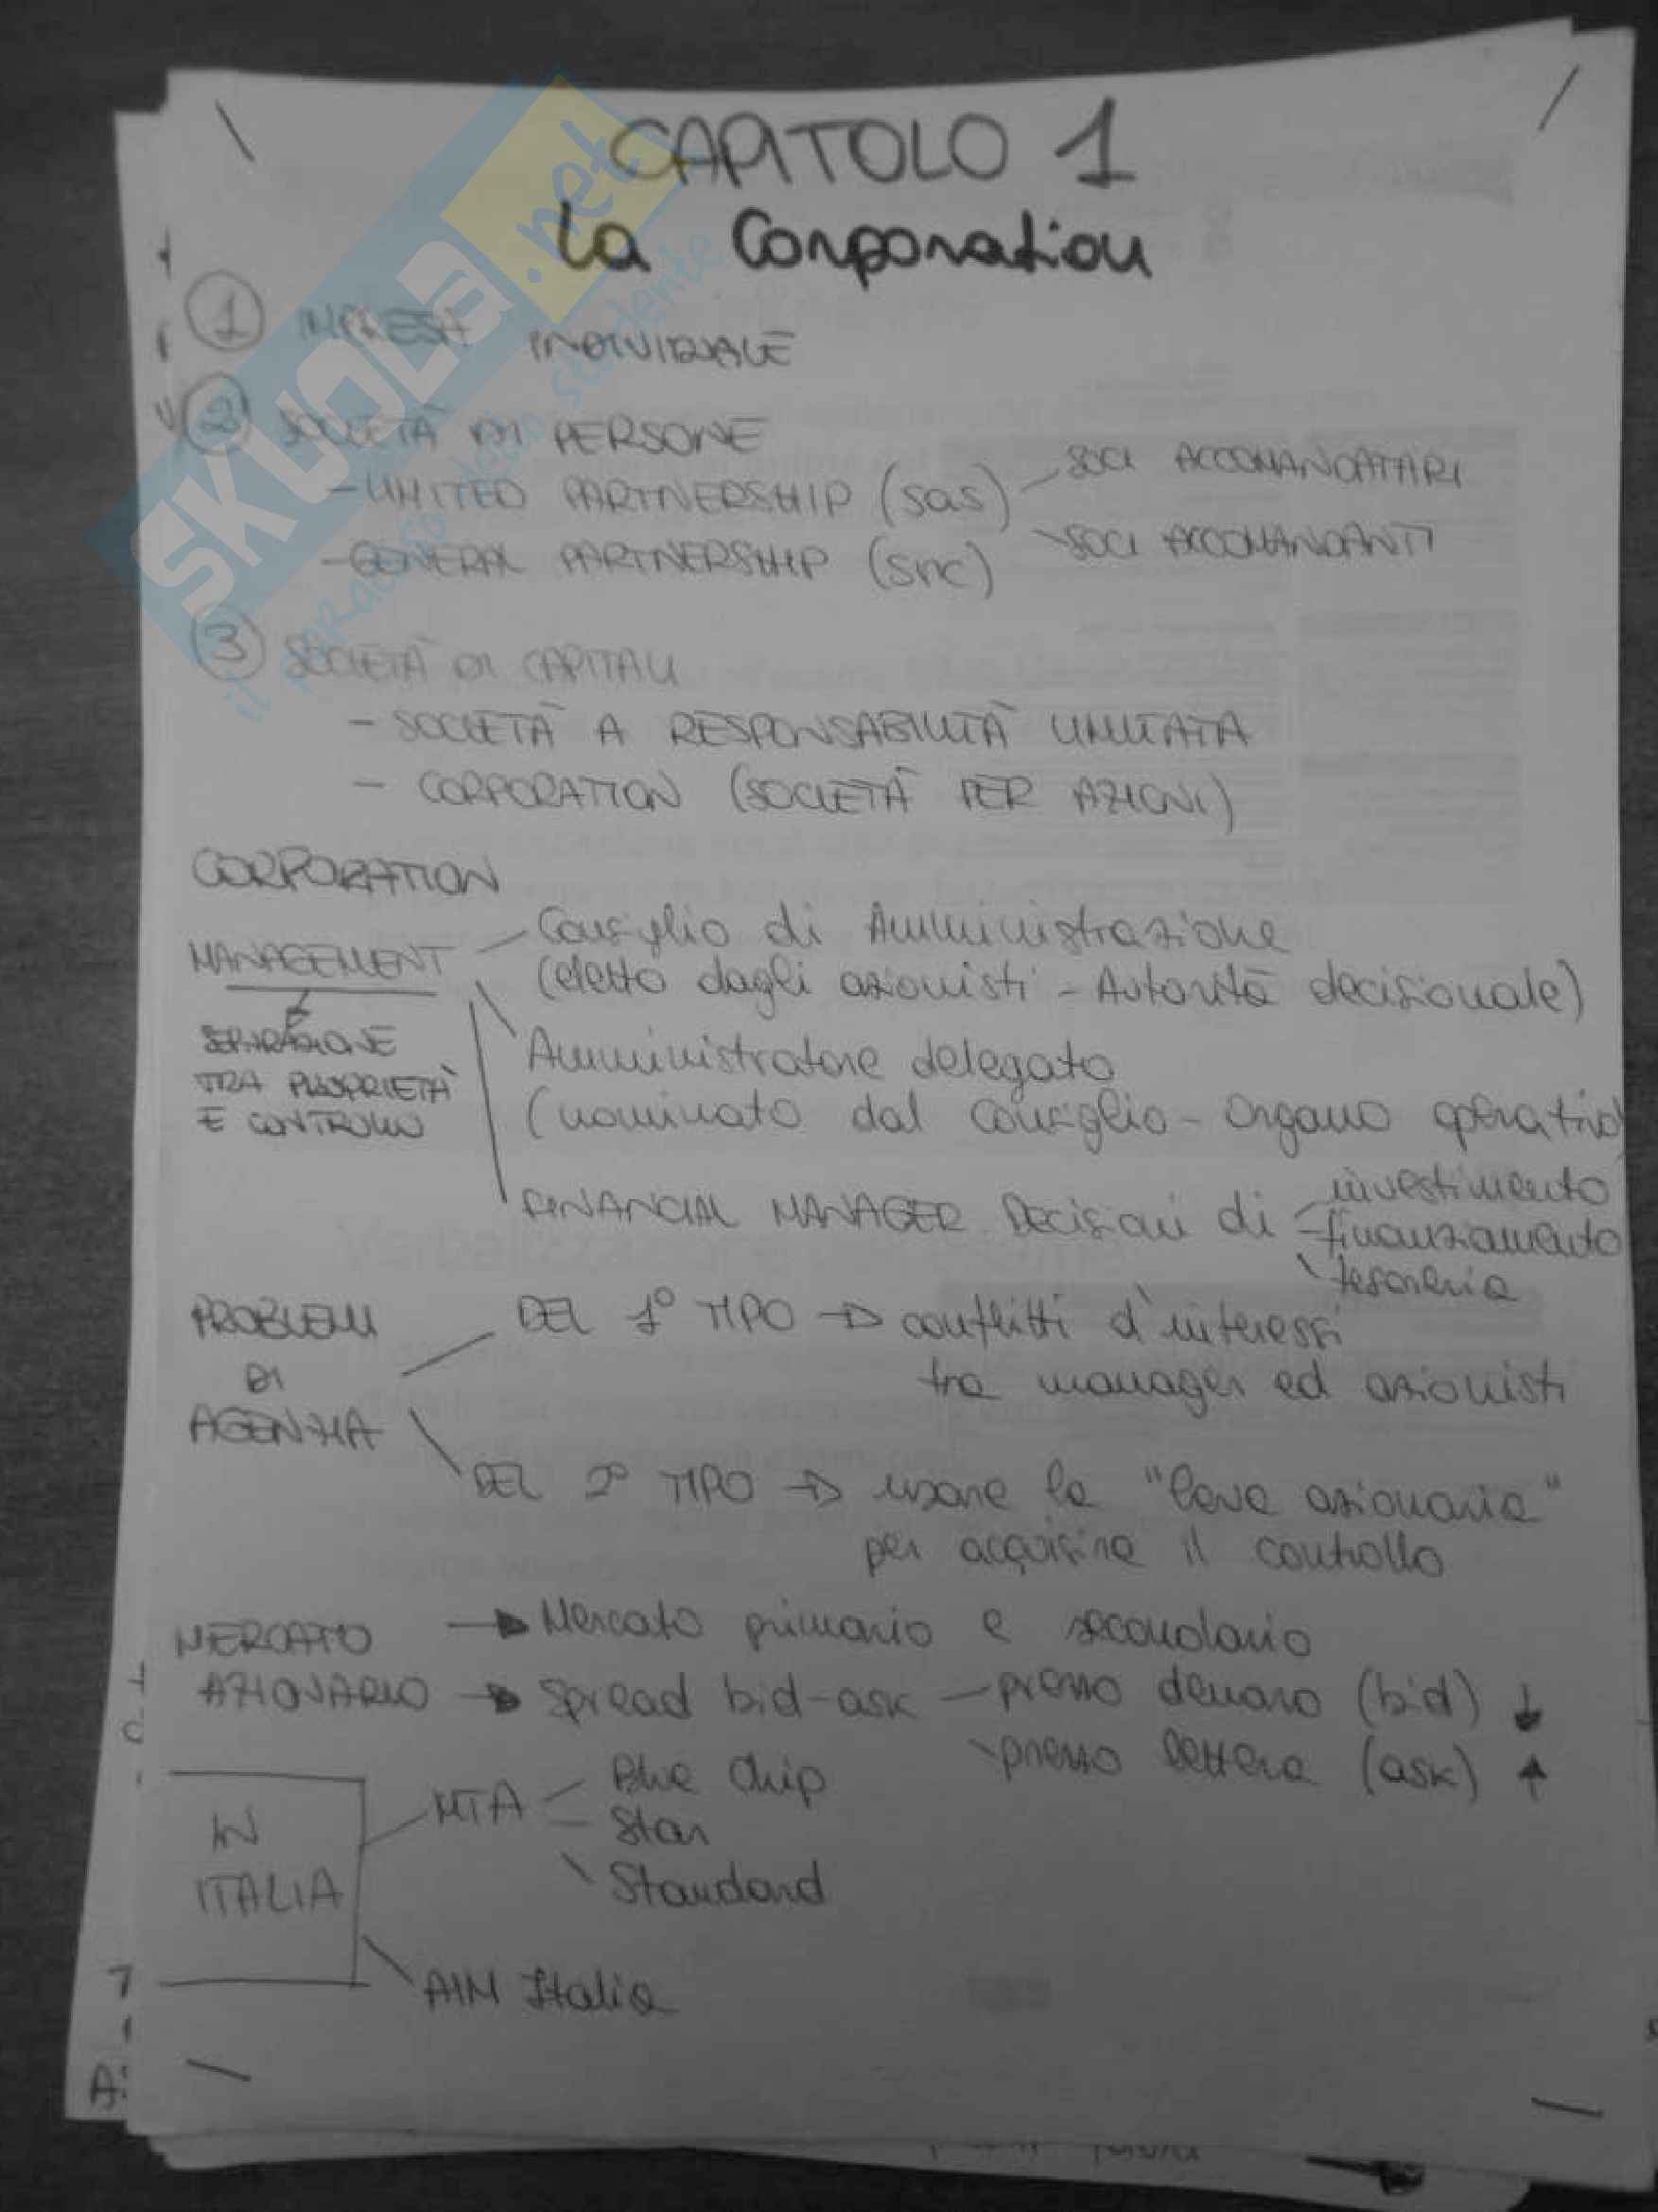 CAPITOLO 1
La Corporation
① IMPRESA INDIVIDUALE
② SOCIETÀ DI PERSONE
- LIMITED PARTNERSHIP (sas)
SOCI ACCOMANDATARI
SOCI ACCOMANDANTI
- GENERAL PARTNERSHIP (snc)
③ SOCIETÀ DI CAPITALI
- SOCIETÀ A RESPONSABILITÀ LIMITATA
- CORPORATION (SOCIETÀ PER AZIONI)
CORPORATION
MANAGEMENT
SEPARAZIONE
TRA PROPRIETÀ
E CONTROLLO
Consiglio di Amministrazione
(eletto dagli azionisti - Autorità decisionale)
Amministratore delegato
(nominato dal consiglio - Organo operativo)
FINANCIAL MANAGER Decisioni di
investimento
finanziamento
tesoreria
PROBLEMI
DI
AGENZIA
DEL 1° TIPO → conflitti d'interessi
tra manager ed azionisti
DEL 2° TIPO → usare la "leva azionaria"
per acquisire il controllo
MERCATO
AZIONARIO
→ Mercato primario e secondario
→ Spread bid-ask
prezzo denaro (bid) ↓
prezzo lettera (ask) ↑
IN
ITALIA
MTA
Blue Chip
Star
Standard
AIM Italia
SKUOLA.net
il paradiso dello studente